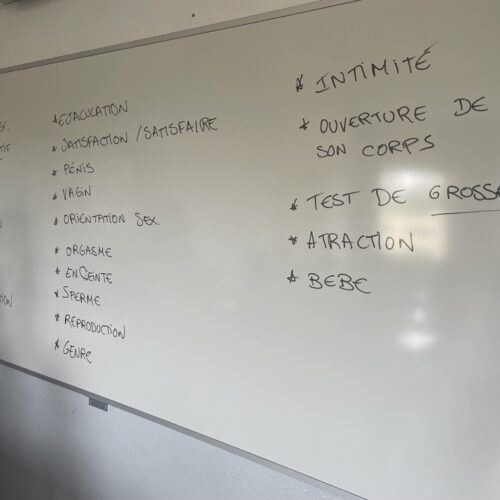 * EJACULATION
* SATISFACTION / SATISFAIRE
* PÉNIS
* VAGIN
* ORIENTATION SEX.
* ORGASME
* ENCEINTE
* SPERME
* REPRODUCTION
* GENRE
* INTIMITÉ
* OUVERTURE DE
SON CORPS
* TEST DE GROSSE
* ATRACTION
* BEBE